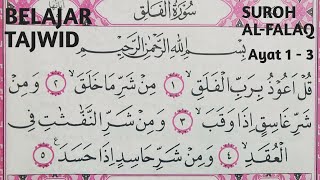 BELAJAR TAJWID
SUROH AL-FALAQ
Ayat 1 - 3
سُورَةُ الْفَلَقِ
بِسْمِ اللّٰهِ الرَّحْمٰنِ الرَّحِيْمِ
قُلْ اَعُوْذُ بِرَبِّ الْفَلَقِۙ ١ مِنْ شَرِّ مَا خَلَقَۙ ٢ وَمِنْ
شَرِّ غَاسِقٍ اِذَا وَقَبَۙ ٣ وَمِنْ شَرِّ النَّفّٰثٰتِ فِى
الْعُقَدِۙ ٤ وَمِنْ شَرِّ حَاسِدٍ اِذَا حَسَدَ ٥